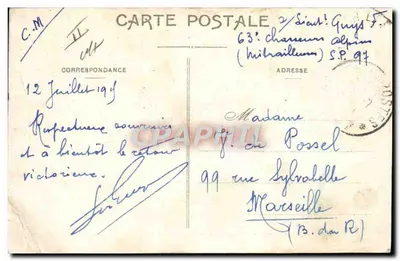 C.M
CARTE POSTALE
S/Lieut. Guys
63e chasseurs alpins
(mitrailleurs) S.P. 97
CORRESPONDANCE
ADRESSE
12 Juillet 19
Respectueux souvenir
et à bientôt le retour
victorieux.
Madame
de Possel
99 rue Sylvabelle
Marseille
(B. du R)
CPAPHIL
POSTES